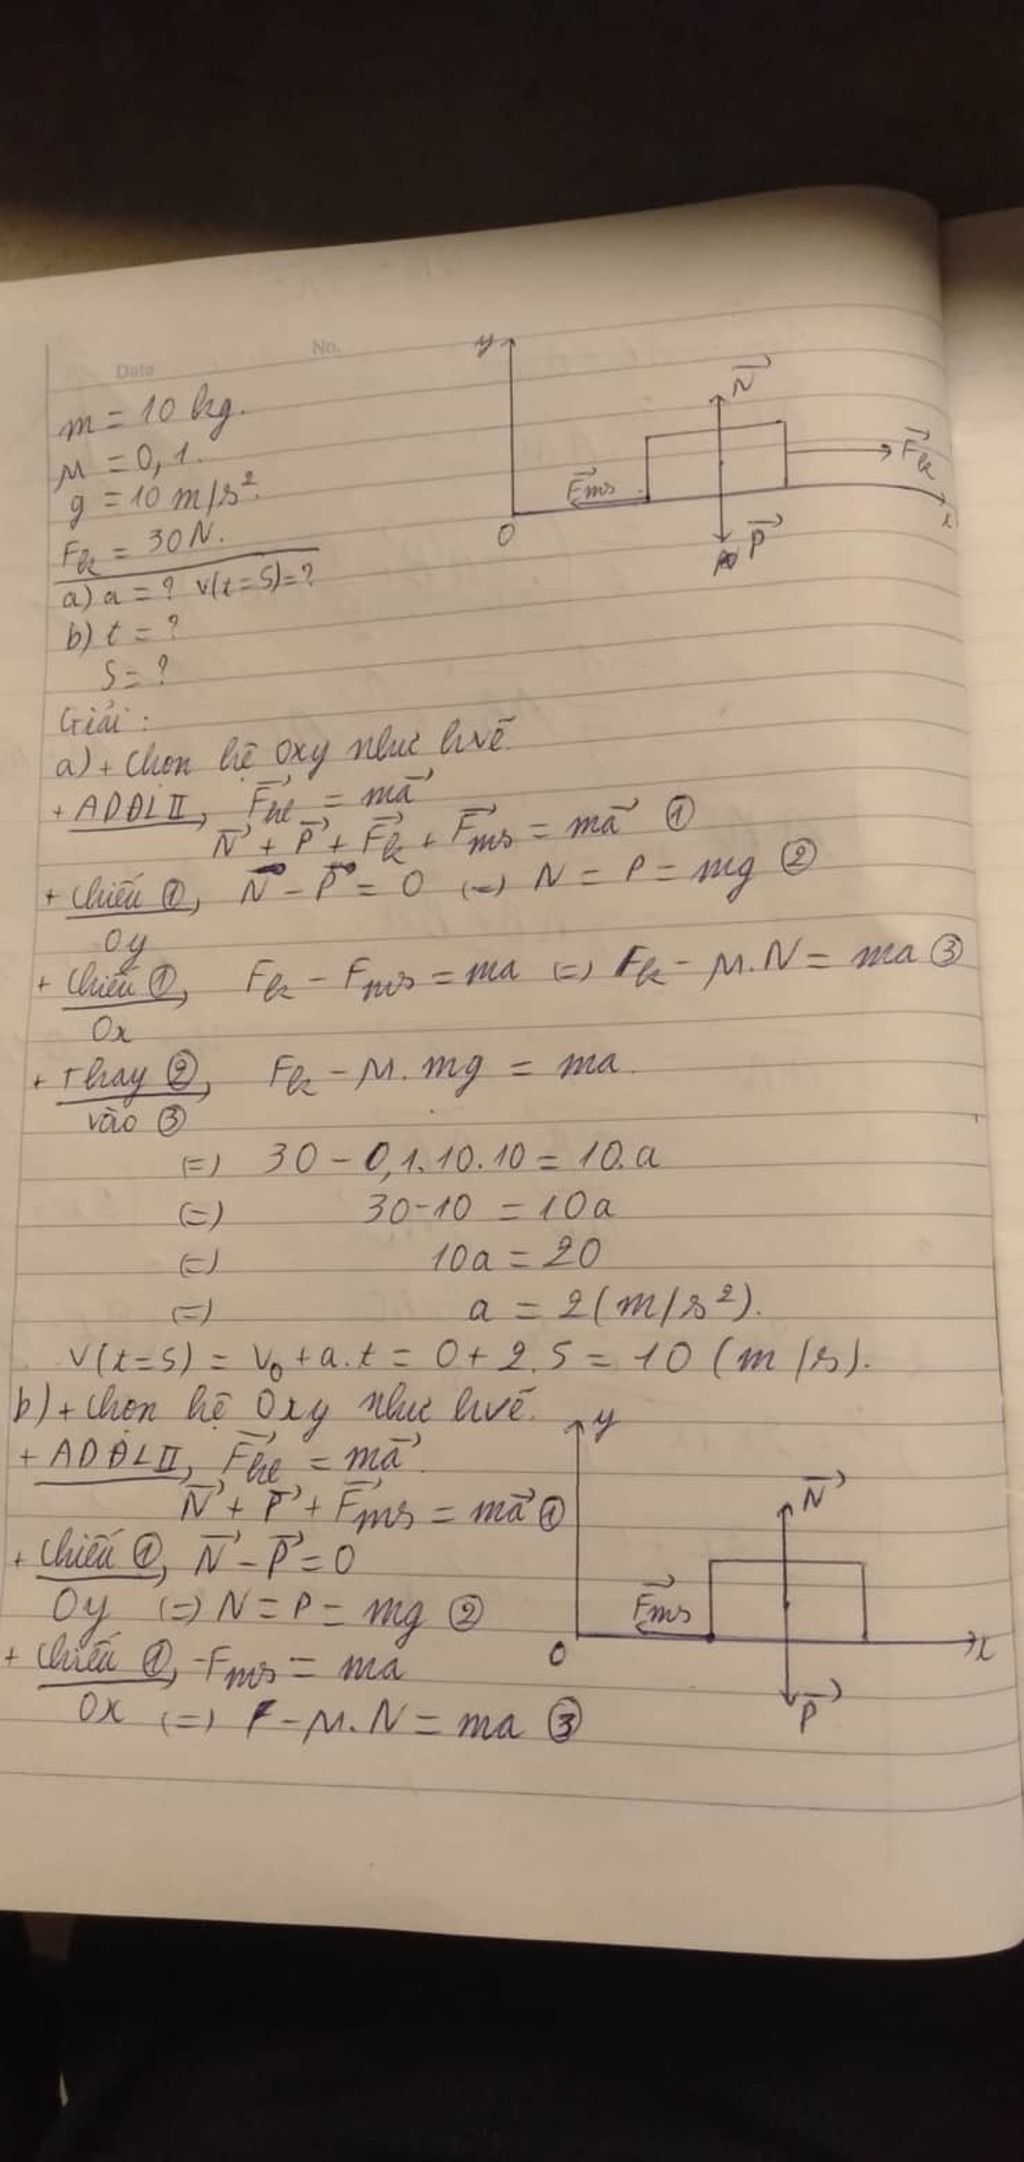 Date No.
m = 10 kg.
μ = 0,1.
g = 10 m/s².
Fk = 30N.
a) a = ? v(t=5)=?
b) t = ?
S = ?
y
N
Fk
Fms
O
P
x
Giải:
a) + Chọn hệ Oxy như hvẽ.
+ ADĐL II, Fhl = ma
N + P + Fk + Fms = ma ①
+ Chiếu ①, N - P = 0 (=) N = P = mg ②
Oy
+ Chiếu ①, Fk - Fms = ma (=) Fk - μ.N = ma ③
Ox
+ Thay ②, Fk - μ.mg = ma.
vào ③
(=) 30 - 0,1.10.10 = 10.a
(=) 30-10 = 10a
(=) 10a = 20
(=) a = 2(m/s²).
v(t=5) = v₀ + a.t = 0 + 2.5 = 10 (m/s).
b) + Chọn hệ Oxy như hvẽ.
+ ADĐL II, Fhl = ma.
N + P + Fms = ma ①
+ Chiếu ①, N - P = 0
Oy (=) N = P = mg ②
+ Chiếu ①, -Fms = ma
Ox (=) -μ.N = ma ③
y
N
Fms
O
x
P